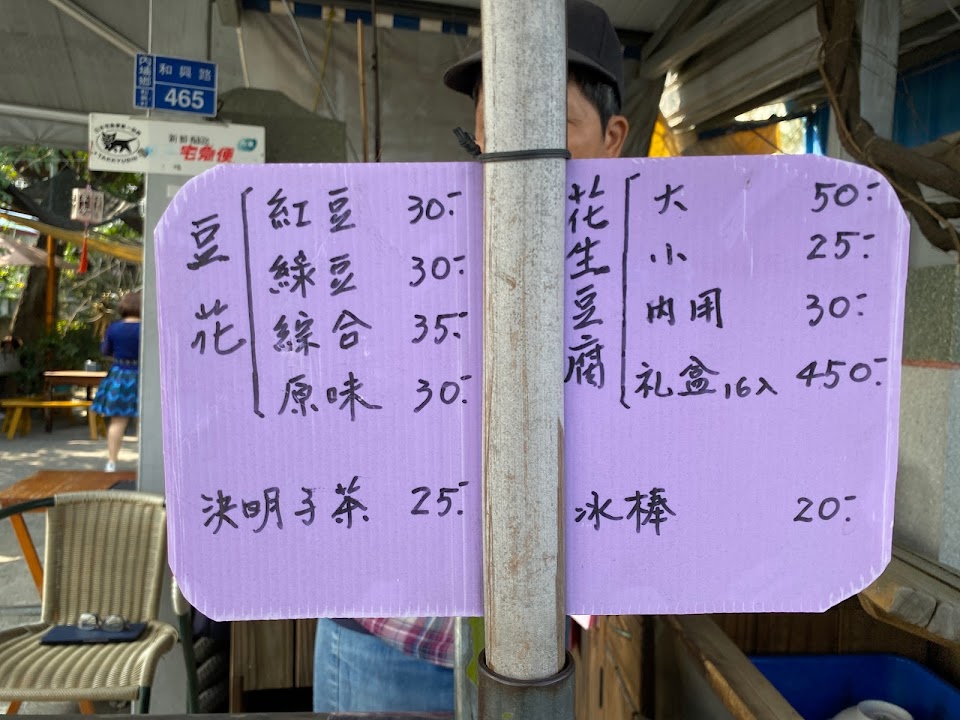 內埔鄉 和興路
465
宅急便
豆花
紅豆 30.-
綠豆 30.-
綜合 35.-
原味 30.-
決明子茶 25.-
花生豆腐
大 50.-
小 25.-
內用 30.-
礼盒16入 450.-
冰棒 20.-